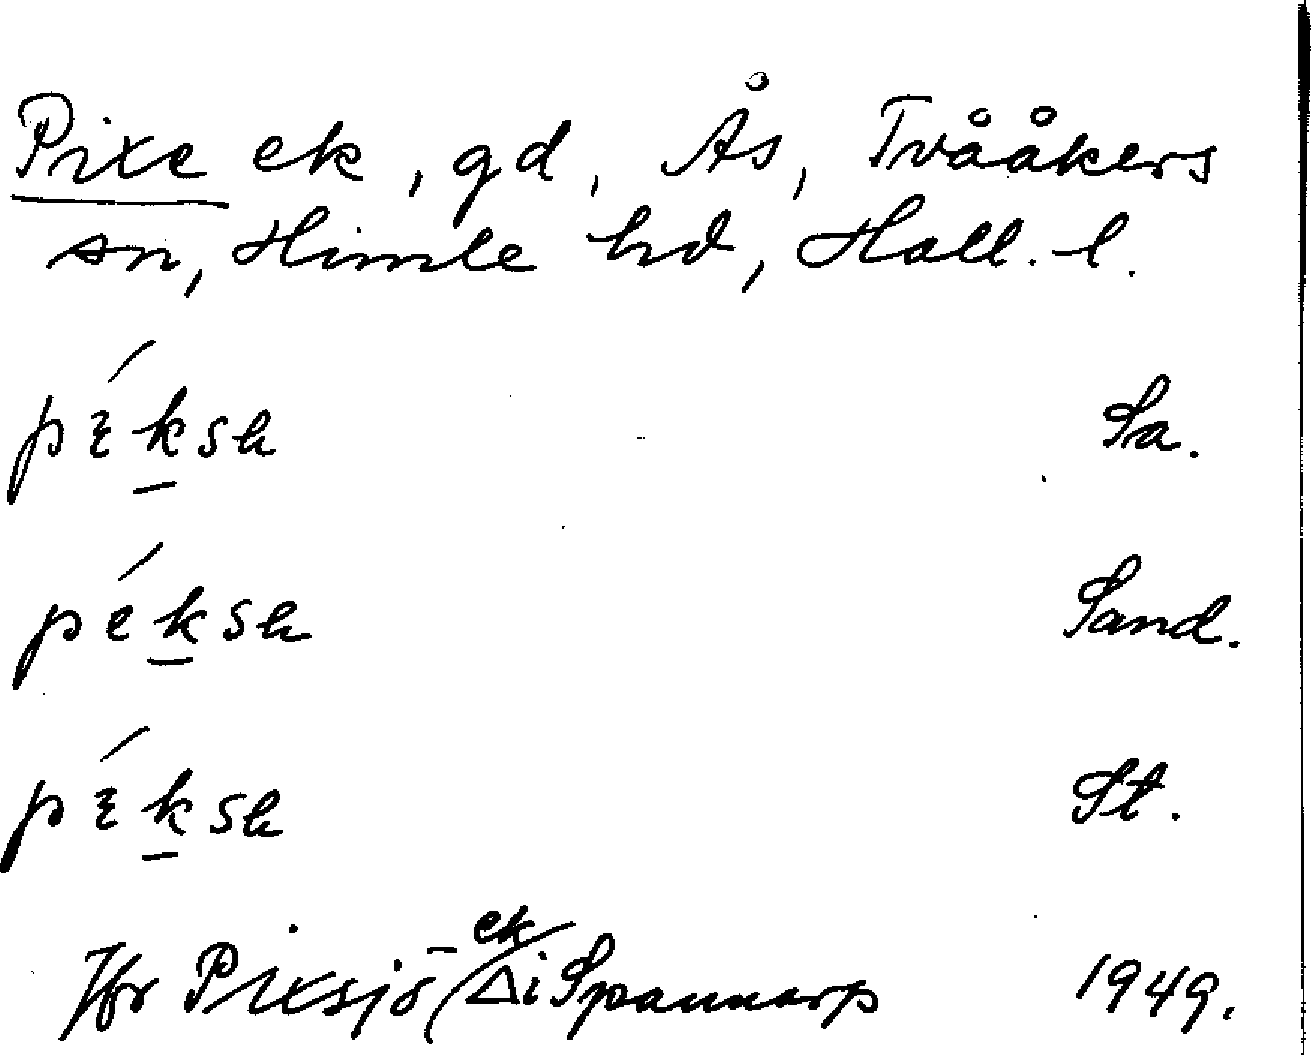 Pixe ek, gd, Ås, Tvååkers
sn, Himle hd, Hall. l.
péksa Sa.
péksa Sand.
péksa St.
Jfr Pixsjö- (ek Δ i Spannarp 1949.